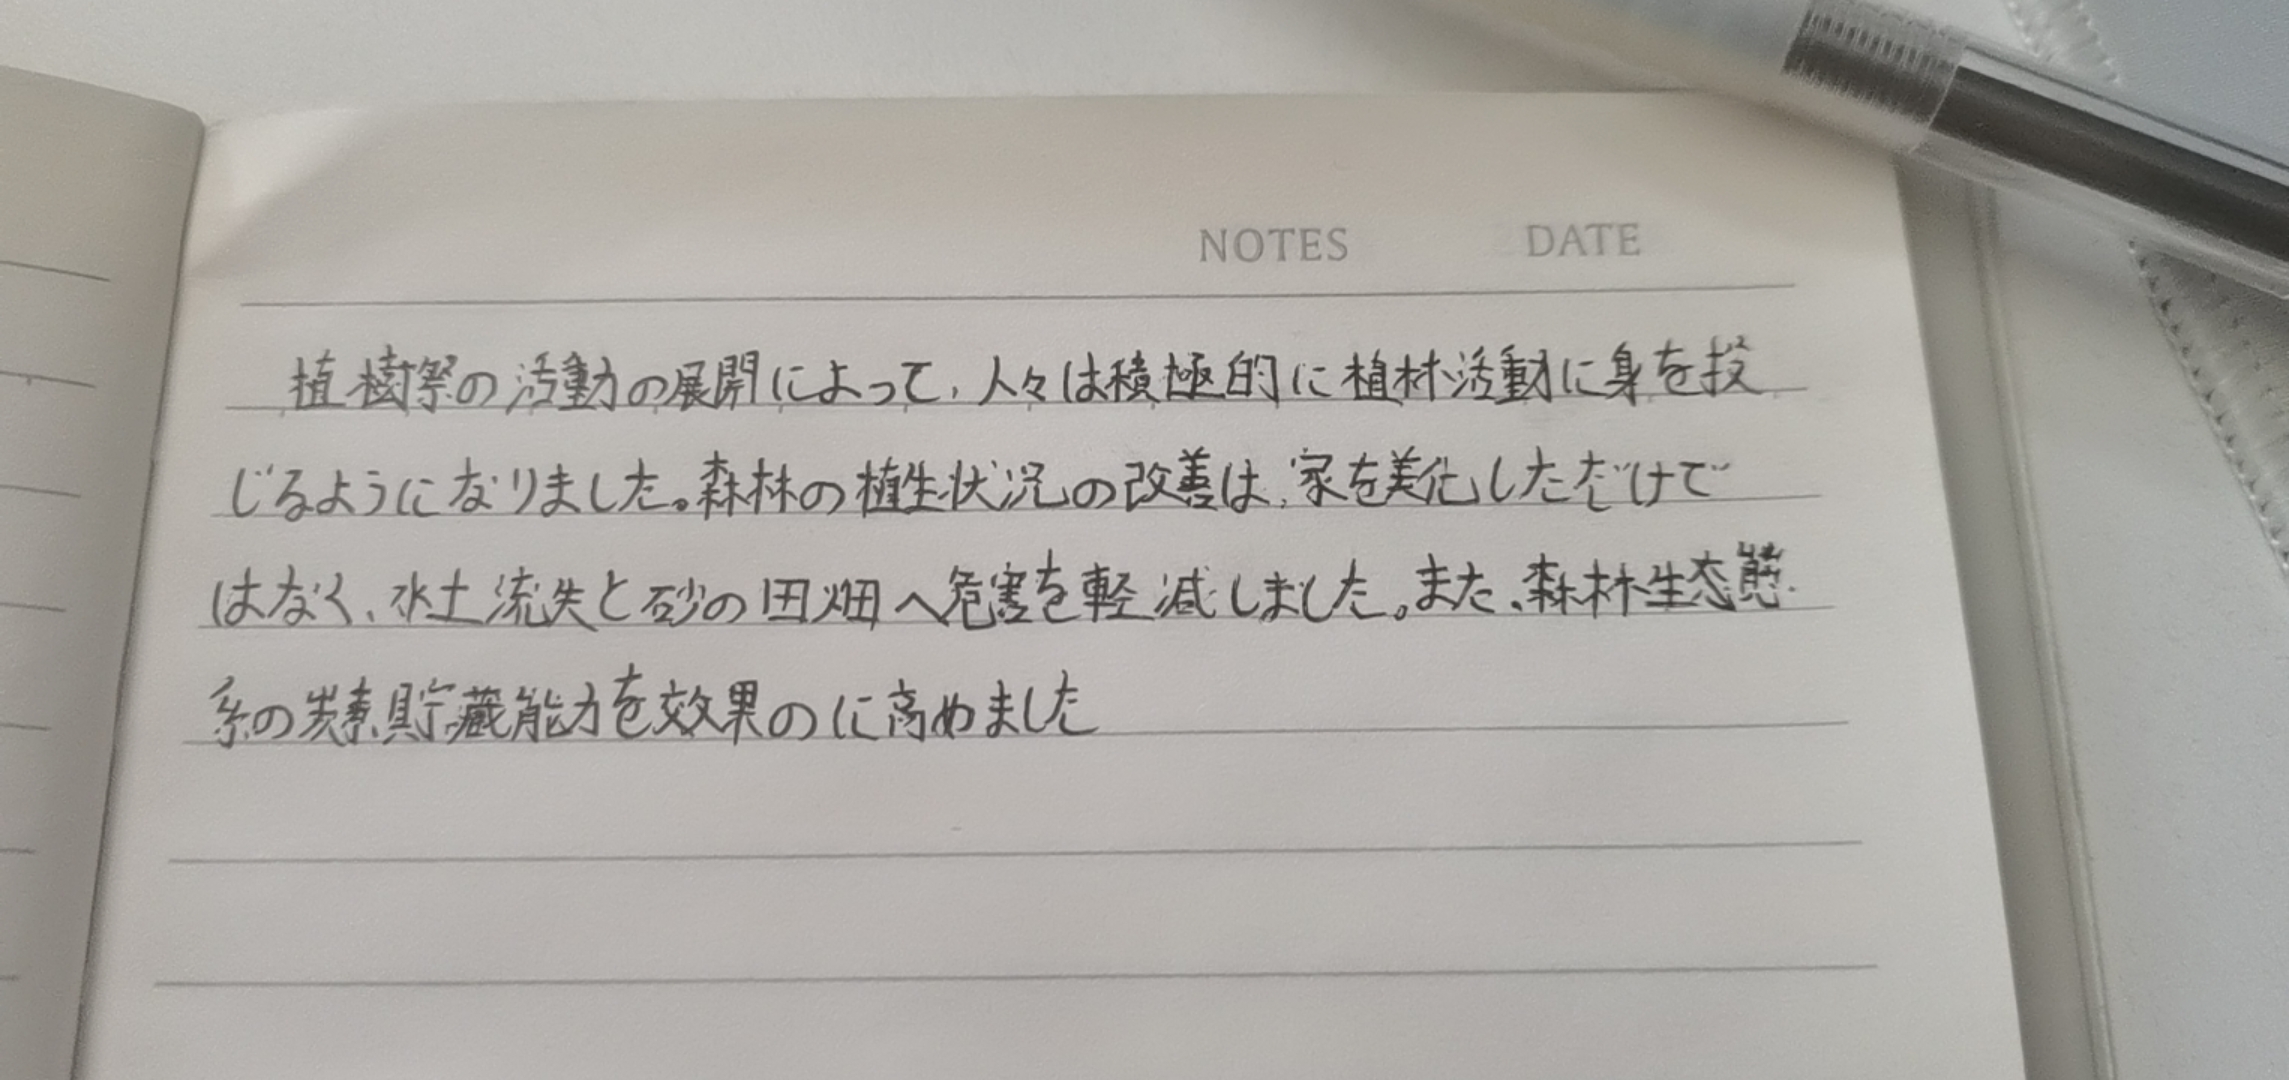 NOTES DATE
植樹祭の活動の展開によって、人々は積極的に植林活動に身を投
じるようになりました。森林の植生状況の改善は、家を美化しただけで
はなく、水土流失と砂の田畑へ危害を軽減しました。また、森林生态態
系の炭素貯蔵能力を效果のに高めました